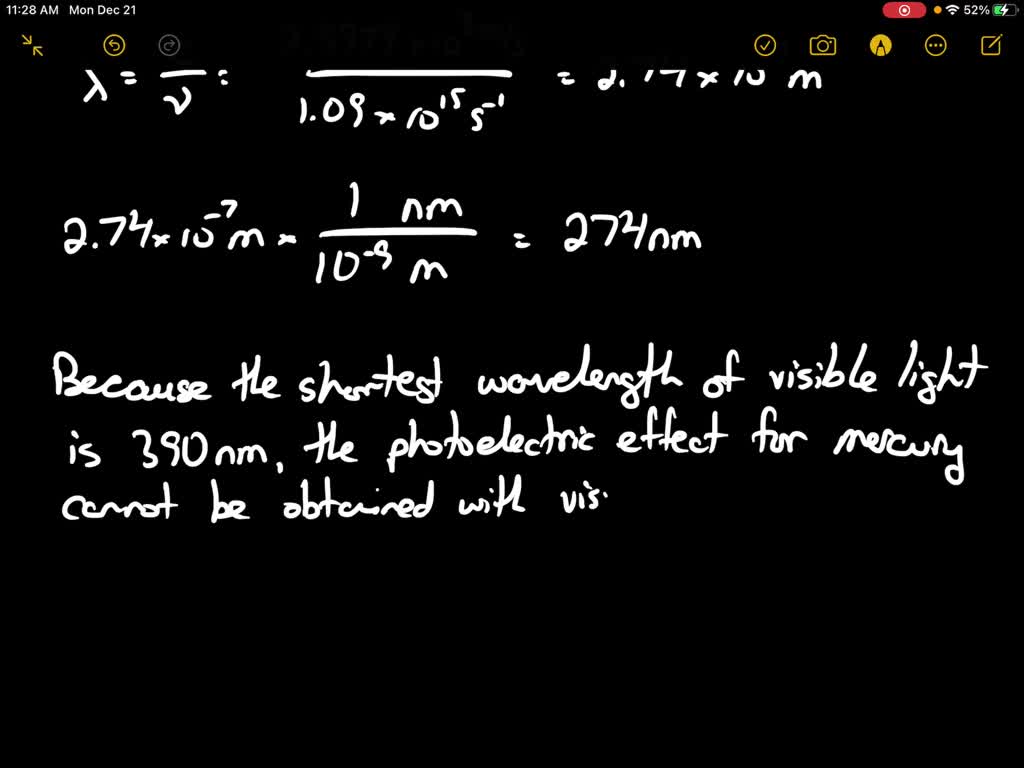 11:28 AM Mon Dec 21 52%
λ = — : — = m
ν 1.09 × 10¹⁵ s⁻¹
2.74 × 10⁻⁷ m × 1 nm / 10⁻⁹ m = 274 nm
Because the shortest wavelength of visible light
is 390 nm, the photoelectric effect for mercury
cannot be obtained with vis